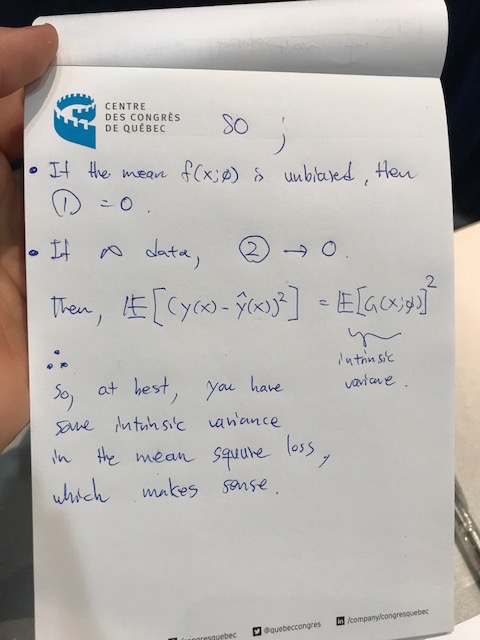 CENTRE
DES CONGRÈS
DE QUÉBEC
so ;
• If the mean f(x;φ) is unbiased, then
① = 0.
• If ∞ data, ② → 0.
Then, 𝔼[(y(x) - ŷ(x))²] = 𝔼[G(x;φ)]²
intrinsic
variance.
∴
So, at best, you have
some intrinsic variance
in the mean square loss,
which makes sense.
/congresquebec @quebeccongres /company/congresquebec